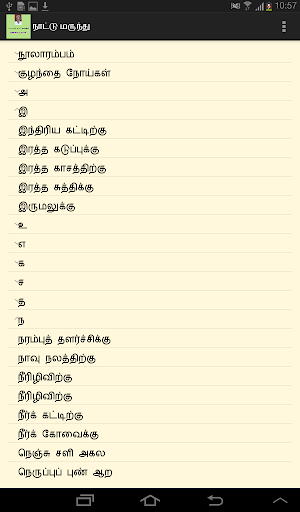 10:57
நாட்டு மருந்து
நூலாரம்பம்
குழந்தை நோய்கள்
அ
இ
இந்திரிய கட்டிற்கு
இரத்த கடுப்புக்கு
இரத்த காசத்திற்கு
இரத்த சுத்திக்கு
இருமலுக்கு
உ
எ
க
ச
த
ந
நரம்புத் தளர்ச்சிக்கு
நாவு நலத்திற்கு
நீரிழிவிற்கு
நீரிழிவிற்கு
நீர்க் கட்டிற்கு
நீர்க் கோவைக்கு
நெஞ்சு சளி அகல
நெருப்புப் புண் ஆற